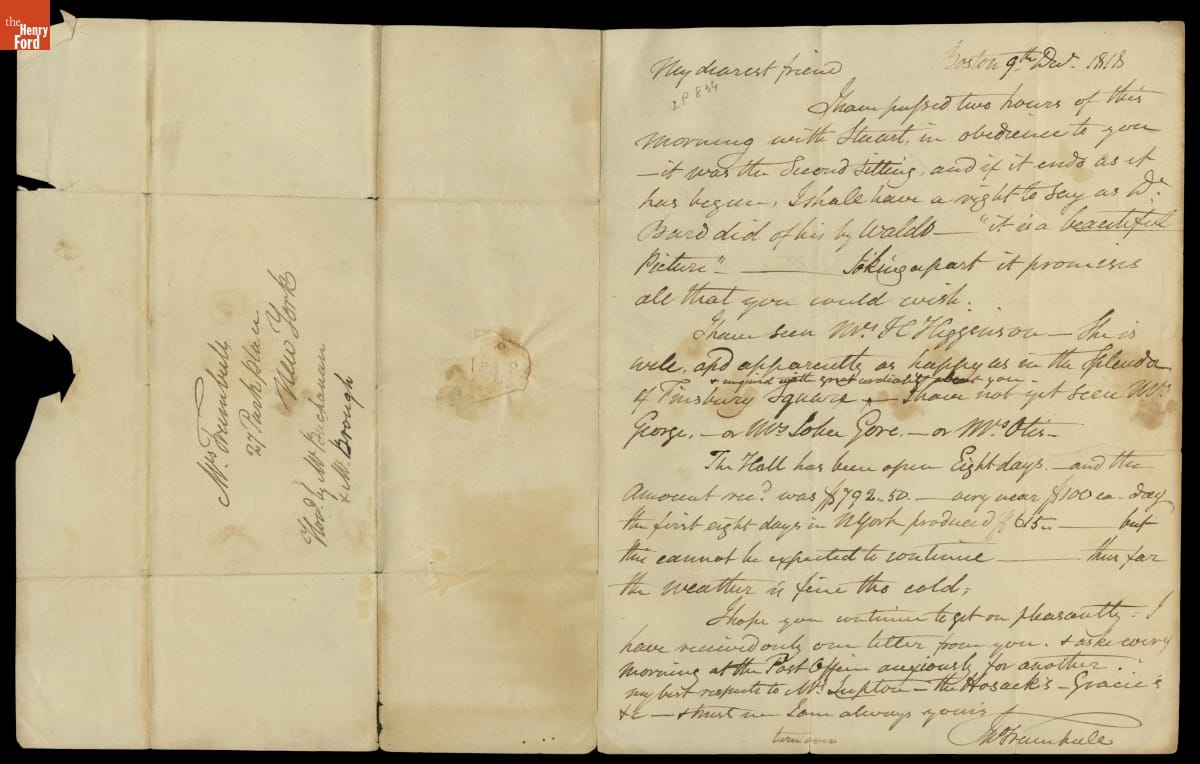 the
Henry
Ford
Mrs Trumbull
27 Park place
New York
Hond. by Mr. Buchanan
& Mr. Brough
Boston 9th Decr. 1818
My dearest friend
2P834
I have passed two hours of this
morning with Stuart, in obedience to you
— it was the Second Sitting, and if it ends as it
has begun, I shall have a right to say as Dr.
Bard did of his by Waldo — "it is a beautiful
Picture" — Joking apart it promises
all that you could wish.
I have seen Mrs. H Higginson — She is
well, and apparently as happy as in the Splendor
& enquired with great cordiality about you —
of Finsbury Square, — I have not yet seen Mrs.
George, — or Mrs Gore, — or Mrs Otis —
The Hall has been open Eight days. — and the
Amount recd. was $792.50. — very near $100 ea. day
the first eight days in NYork produced $615. — but
this cannot be expected to continue — thus far
the weather is fine tho cold;
I hope you continue to get on pleasantly: I
have received only one letter from you. & aske every
morning at the Post Office anxiously for another.
my best respects to Mrs Lupton — the Hosack's — Gracie's
&c — & trust me I am always yours
Jn Trumbull
turn over